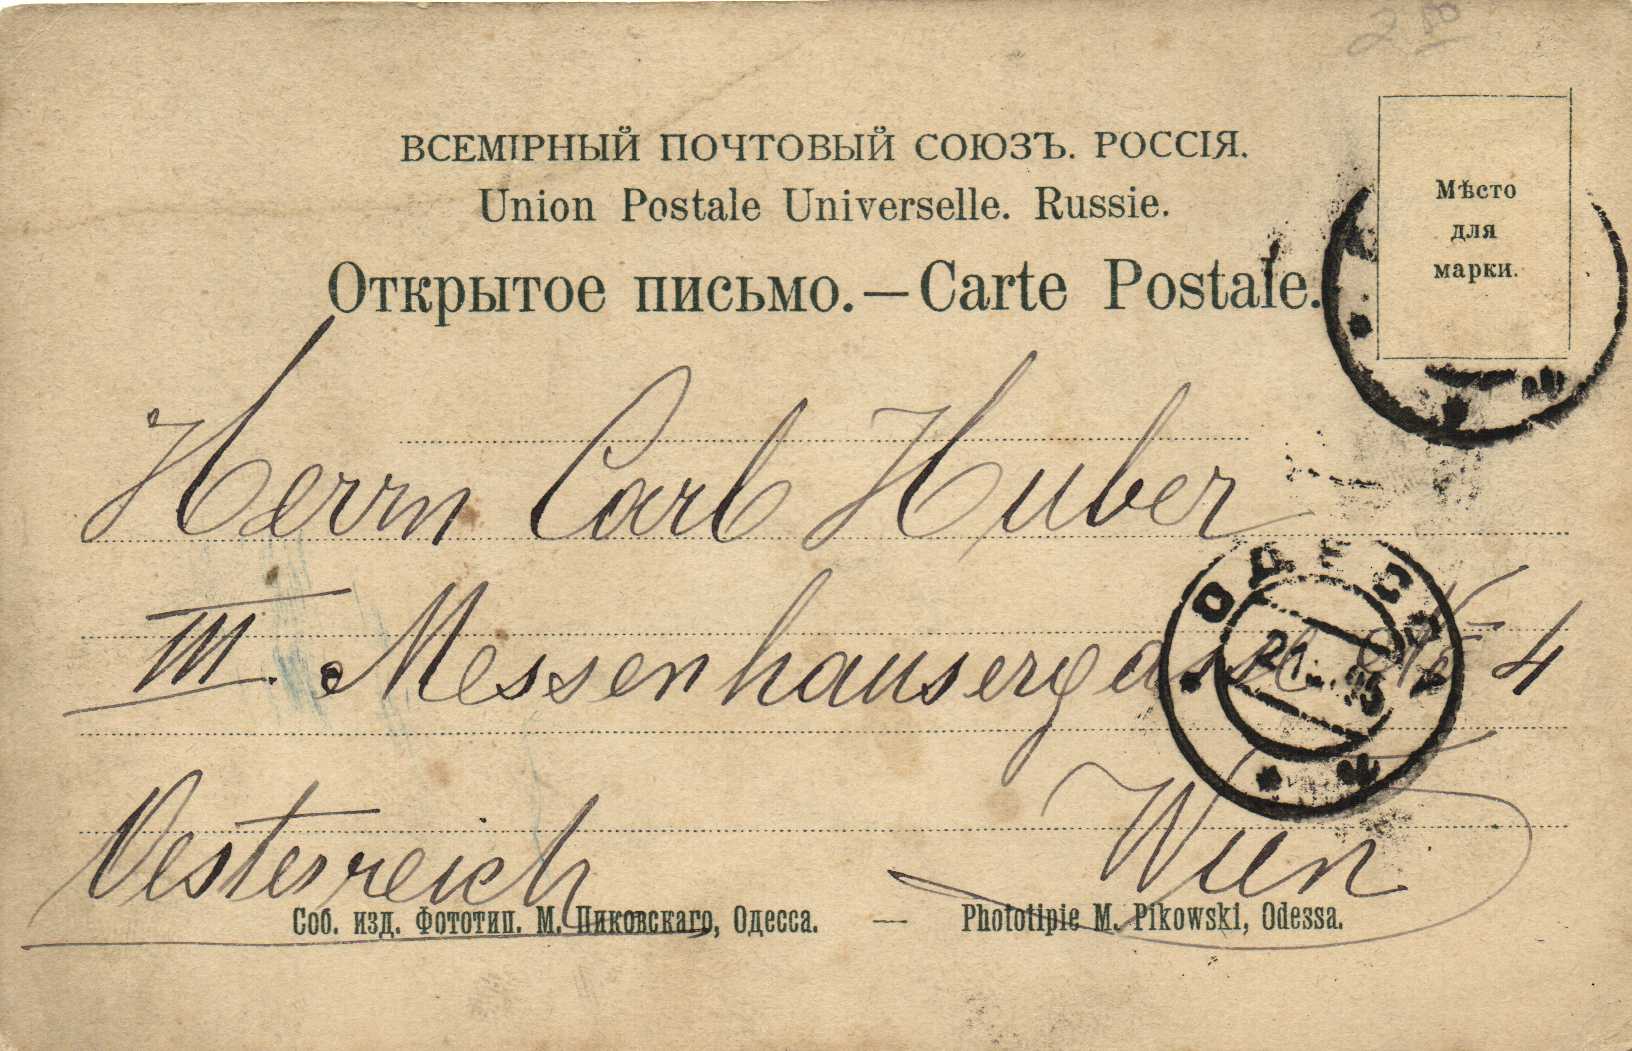 2 50
ВСЕМІРНЫЙ ПОЧТОВЫЙ СОЮЗЪ. РОССІЯ.
Union Postale Universelle. Russie.
Открытое письмо. — Carte Postale.
Мѣсто
для
марки.
Herrn Carl Huber
III. Messenhausergasse № 4
ОДЕССА
21
Oesterreich Wien
Соб. изд. Фототип. М. Пиковскаго, Одесса. — Phototipie M. Pikowski, Odessa.